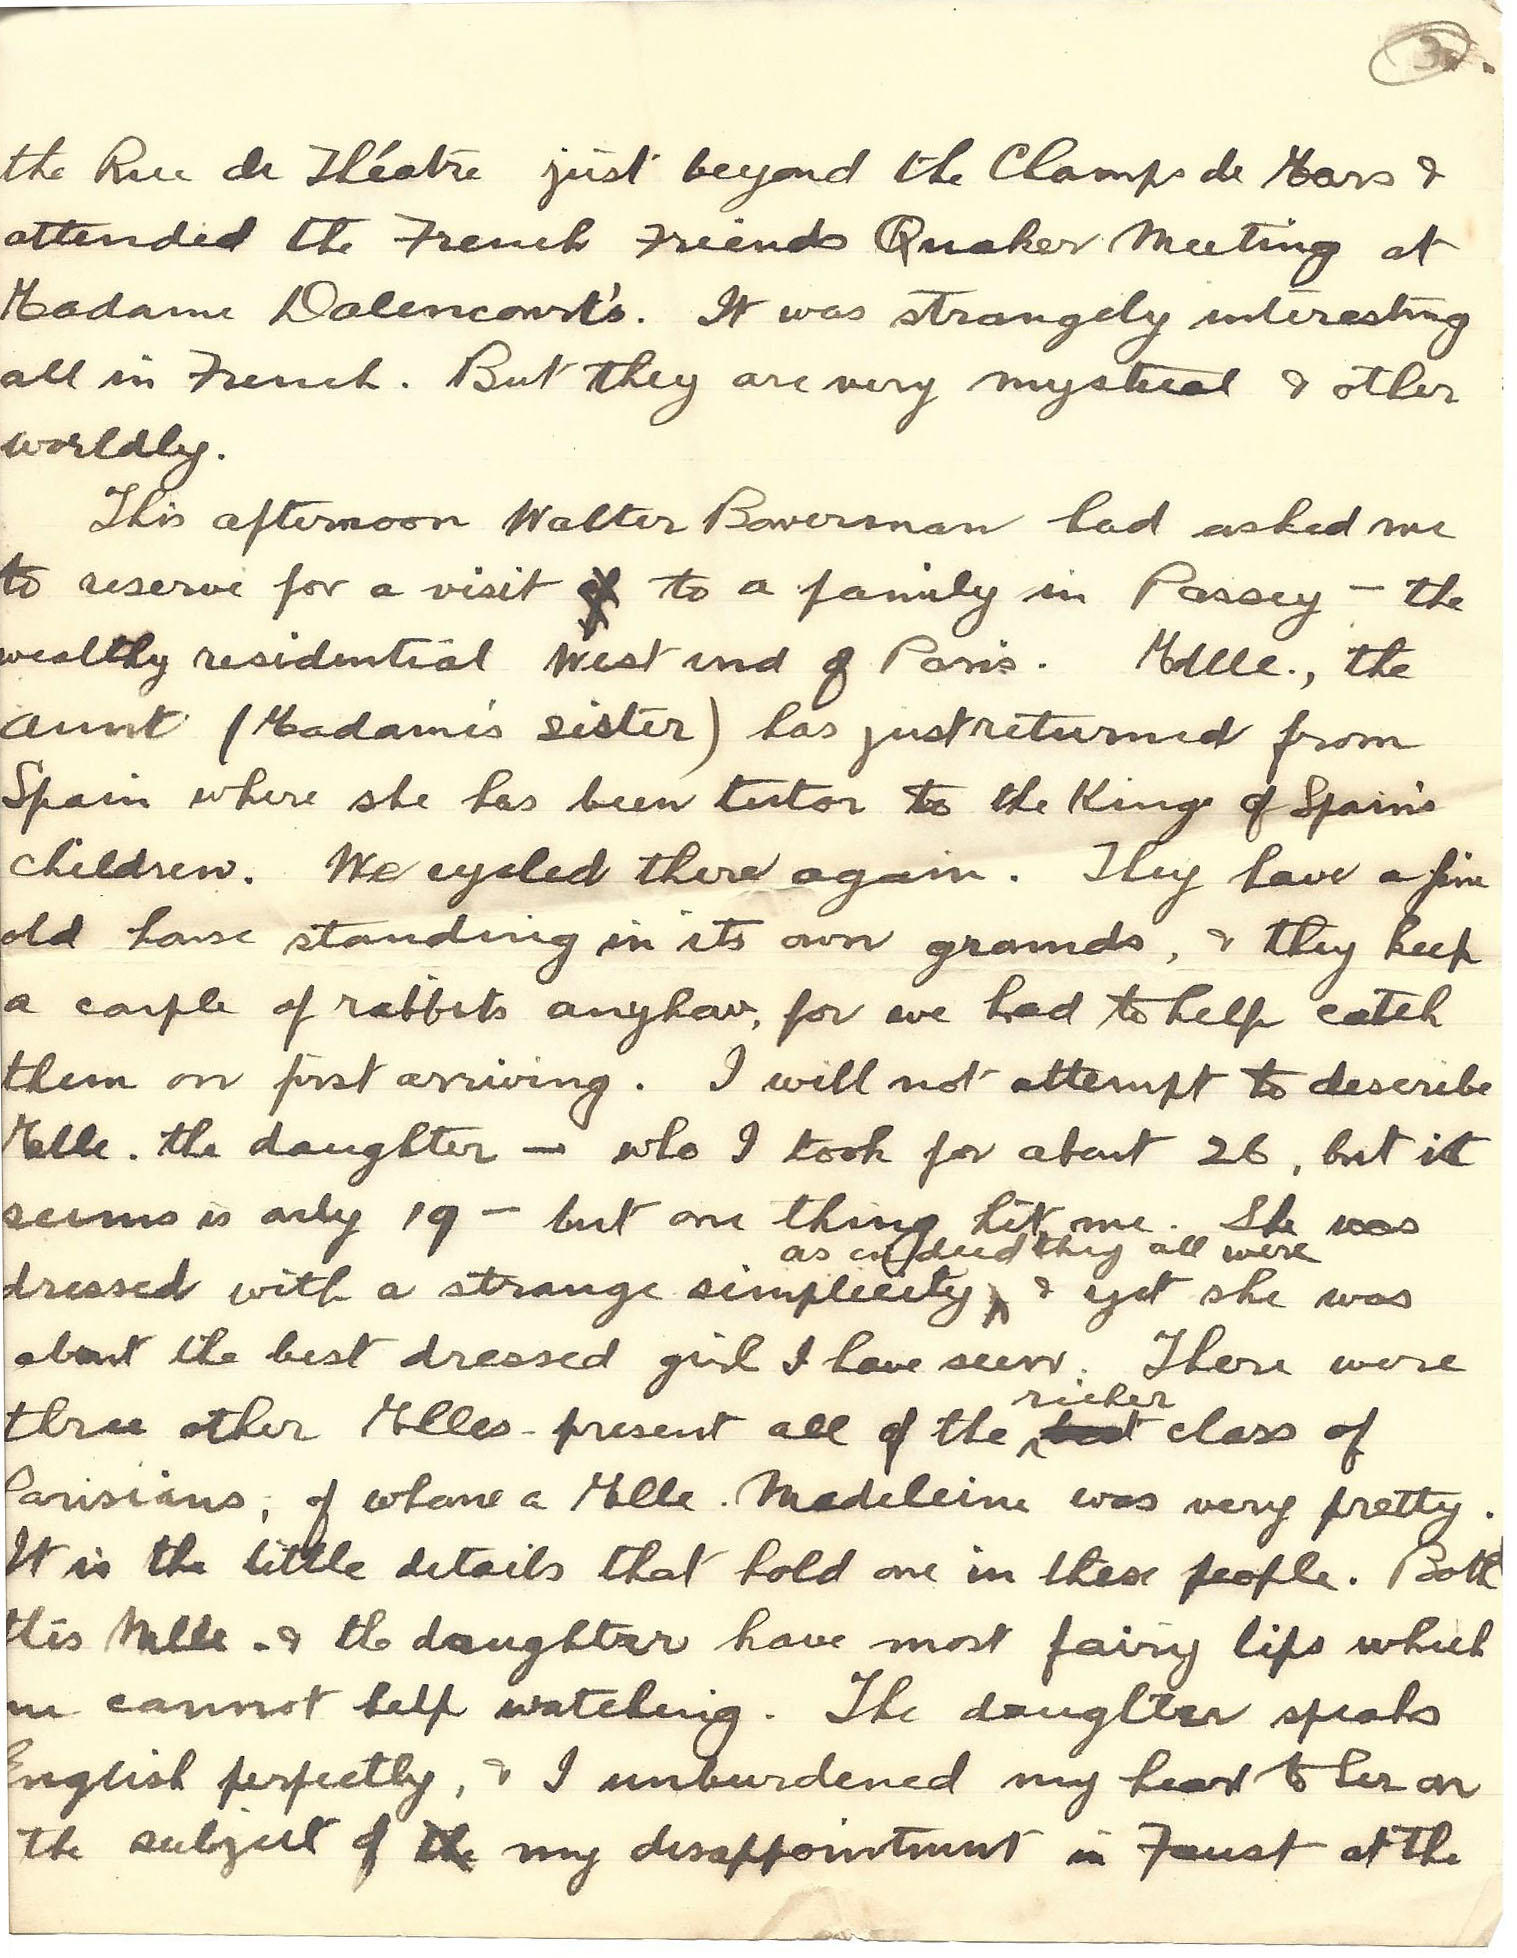 3.
the Rue de Théatre just beyond the Champs de Mars &
attended the French Friends Quaker Meeting at
Madame Dalencourt's. It was strangely interesting
all in French. But they are very mystical & other
worldly.
This afternoon Walter Bowerman had asked me
to reserve for a visit to a family in Passey – the
wealthy residential West end of Paris. Mdlle., the
aunt (Madame's sister) has just returned from
Spain where she has been tutor to the King of Spain's
children. We cycled there again. They have a fine
old house standing in its own grounds, & they keep
a couple of rabbits anyhow, for we had to help catch
them on first arriving. I will not attempt to describe
Mlle. the daughter – who I took for about 26, but it
seems is only 19 – but one thing hit me. She was
as indeed they all were
dressed with a strange simplicity, & yet she was
about the best dressed girl I have seen. There were
richer
three other Mlles. present all of the best class of
Parisians, of whom a Mlle. Madeleine was very pretty.
It is the little details that hold one in these people. Both
this Mlle. & the daughter have most fairy lips which
one cannot help watching. The daughter speaks
English perfectly, & I unburdened my heart to her on
the subject of the my disappointment in Faust at the